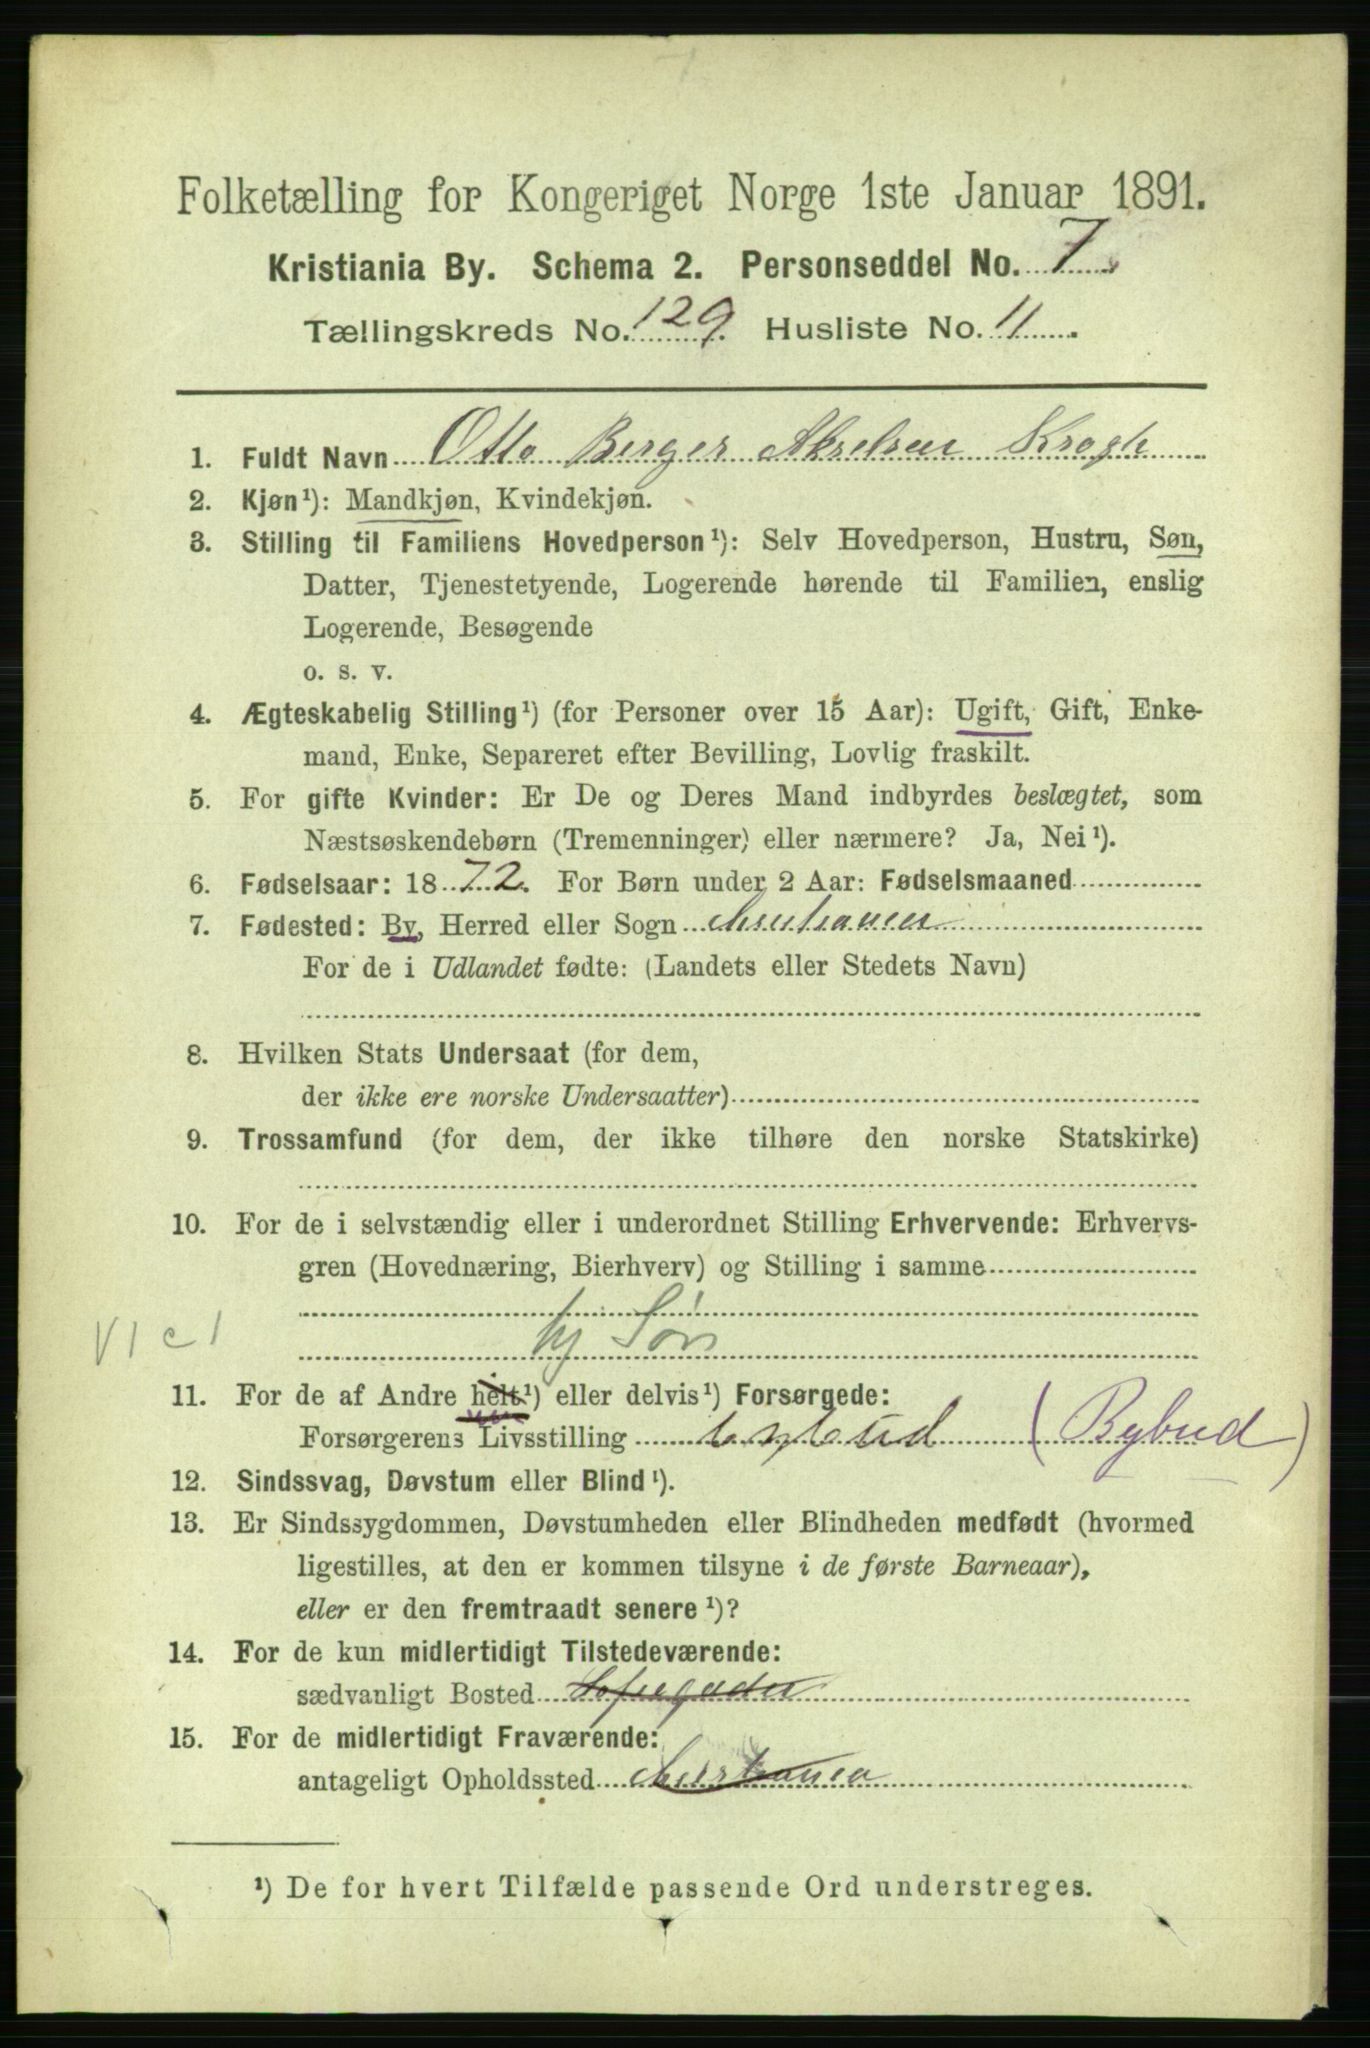 Folketælling for Kongeriget Norge 1ste Januar 1891.
Kristiania By. Schema 2. Personseddel No. 7.
Tællingskreds No. 129. Husliste No. 11.
1. Fuldt Navn Otto Berger Akselsen Krogh
2. Kjøn¹): Mandkjøn, Kvindekjøn.
3. Stilling til Familiens Hovedperson¹): Selv Hovedperson, Hustru, Søn,
Datter, Tjenestetyende, Logerende hørende til Familien, enslig
Logerende, Besøgende
o. s. v.
4. Ægteskabelig Stilling¹) (for Personer over 15 Aar): Ugift, Gift, Enke-
mand, Enke, Separeret efter Bevilling, Lovlig fraskilt.
5. For gifte Kvinder: Er De og Deres Mand indbyrdes beslægtet, som
Næstsøskendebørn (Tremenninger) eller nærmere? Ja, Nei¹).
6. Fødselsaar: 1872. For Børn under 2 Aar: Fødselsmaaned
7. Fødested: By, Herred eller Sogn Christiania
For de i Udlandet fødte: (Landets eller Stedets Navn)
8. Hvilken Stats Undersaat (for dem,
der ikke ere norske Undersaatter)
9. Trossamfund (for dem, der ikke tilhøre den norske Statskirke)
10. For de i selvstændig eller i underordnet Stilling Erhvervende: Erhvervs-
gren (Hovednæring, Bierhverv) og Stilling i samme
hj Søn
VI c 1
11. For de af Andre helt¹) eller delvis¹) Forsørgede:
Forsørgerens Livsstilling bybud (Bybud)
12. Sindssvag, Døvstum eller Blind¹).
13. Er Sindssygdommen, Døvstumheden eller Blindheden medfødt (hvormed
ligestilles, at den er kommen tilsyne i de første Barneaar),
eller er den fremtraadt senere¹)?
14. For de kun midlertidigt Tilstedeværende:
sædvanligt Bosted Sofiegaden
15. For de midlertidigt Fraværende:
antageligt Opholdssted Christiania
¹) De for hvert Tilfælde passende Ord understreges.